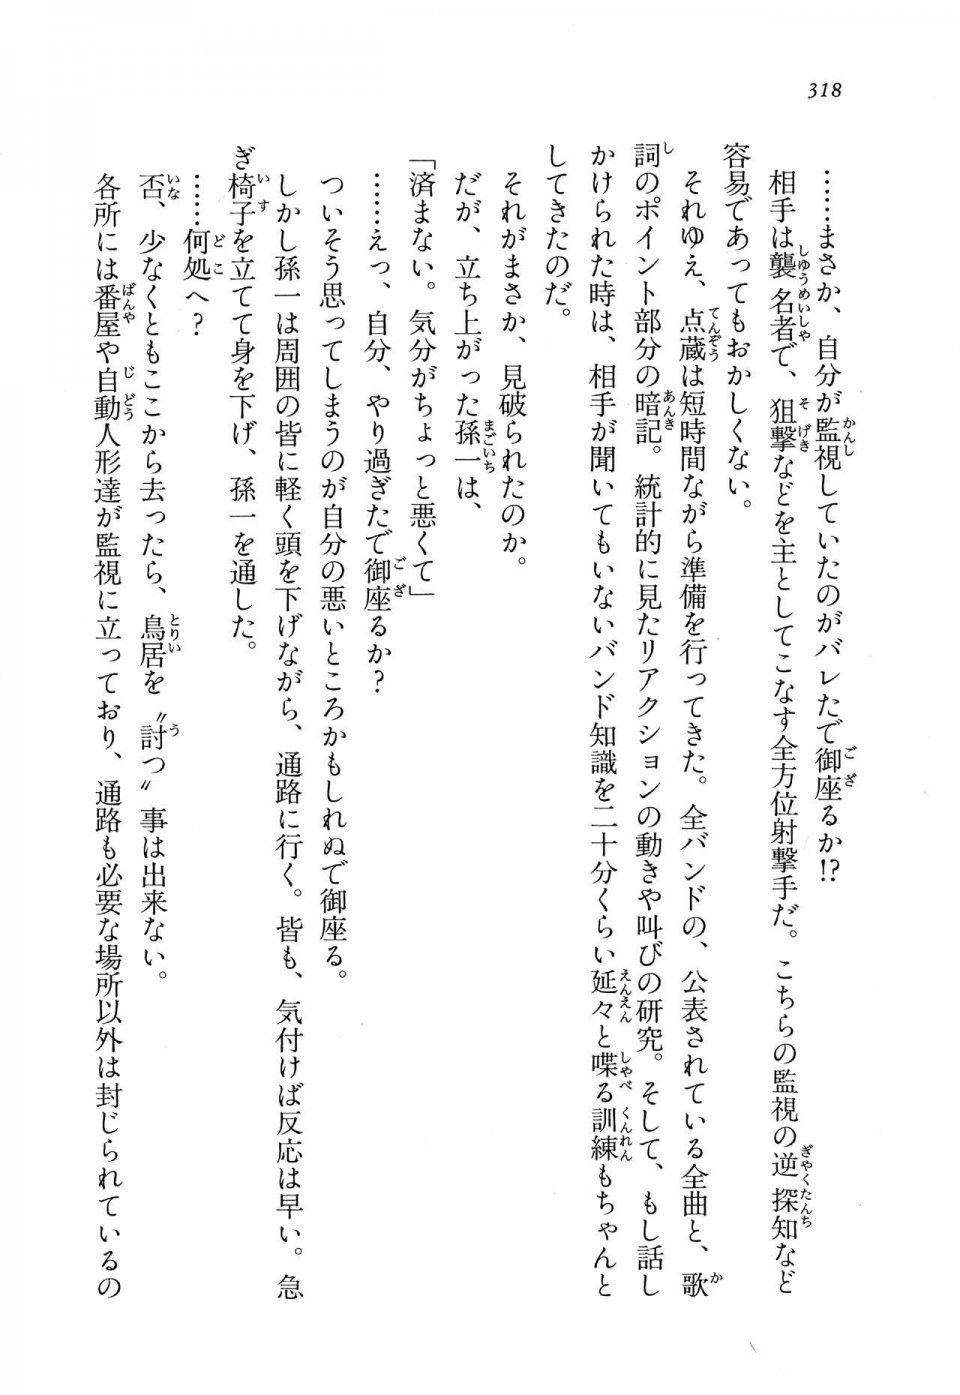 318
……まさか、自分が監視していたのがバレたで御座るか!?
相手は襲名者で、狙撃などを主としてこなす全方位射撃手だ。こちらの監視の逆探知など
容易であってもおかしくない。
それゆえ、点蔵は短時間ながら準備を行ってきた。全バンドの、公表されている全曲と、歌
詞のポイント部分の暗記。統計的に見たリアクションの動きや叫びの研究。そして、もし話し
かけられた時は、相手が聞いてもいないバンド知識を二十分くらい延々と喋る訓練もちゃんと
してきたのだ。
それがまさか、見破られたのか。
だが、立ち上がった孫一は、
「済まない。気分がちょっと悪くて」
……えっ、自分、やり過ぎたで御座るか?
ついそう思ってしまうのが自分の悪いところかもしれぬで御座る。
しかし孫一は周囲の皆に軽く頭を下げながら、通路に行く。皆も、気付けば反応は早い。急
ぎ椅子を立てて身を下げ、孫一を通した。
……何処へ?
否、少なくともここから去ったら、鳥居を〝討つ〟事は出来ない。
各所には番屋や自動人形達が監視に立っており、通路も必要な場所以外は封じられているの